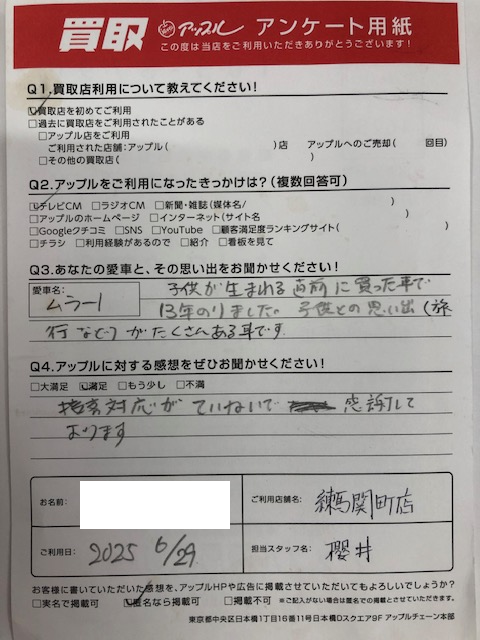 買取 アップル アンケート用紙
この度は当店をご利用いただきありがとうございます!
Q1.買取店利用について教えてください!
☑買取店を初めてご利用
□過去に買取店をご利用されたことがある
□アップル店をご利用
ご利用された店舗:アップル( )店 アップルへのご売却( 回目)
□その他の買取店( )
Q2.アップルをご利用になったきっかけは?(複数回答可)
☑テレビCM □ラジオCM □新聞・雑誌(媒体名/ )
□アップルのホームページ □インターネット(サイト名 )
□Googleクチコミ □SNS □YouTube □顧客満足度ランキングサイト( )
□チラシ □利用経験があるので □紹介 □看板を見て
Q3.あなたの愛車と、その思い出をお聞かせください!
愛車名:
ムラーノ
子供が生まれる直前に買った車で
13年のりました。子供との思い出(旅
行などうがたくさんある車です.
Q4.アップルに対する感想をぜひお聞かせください!
□大満足 ☑満足 □もう少し □不満
接客対応がていねいで 感謝して
おります
お名前:
ご利用店舗名: 練馬関町店
ご利用日: 2025 6/29
担当スタッフ名: 櫻井
お客様に書いていただいた感想を、アップルHPや広告に掲載させていただいてもよろしいでしょうか?
□実名で掲載可 ☑匿名なら掲載可 □掲載不可 ※ご記入がない場合は匿名での掲載とさせていただきます。
東京都中央区日本橋1丁目16番11号日本橋Dスクエア9F アップルチェーン本部